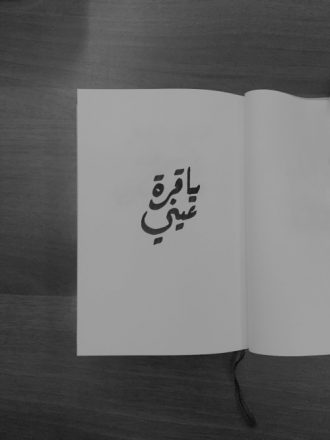 يا قرة
عيني